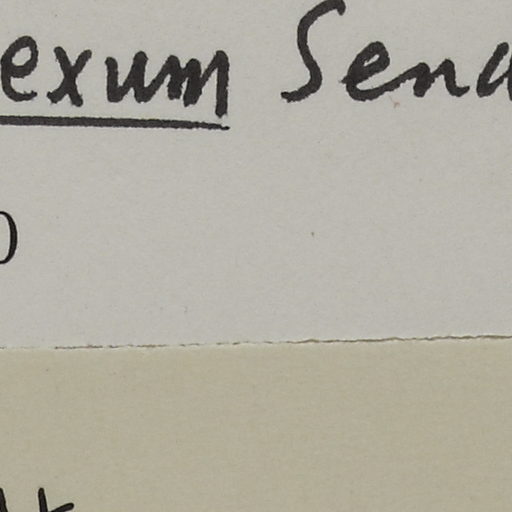 exum Send
0